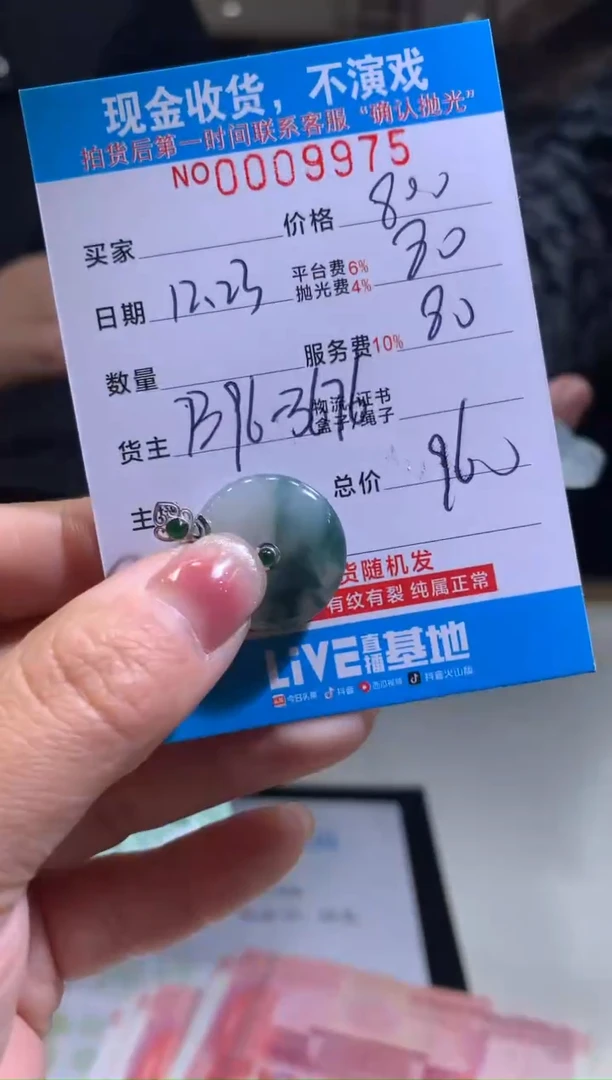 现金收货，不演戏
拍货后第一时间联系客服“确认抛光”
NO0009975
买家 价格 800
日期 12.23 平台费6% 抛光费4% 30
数量 服务费10% 80
货主 B96-3676 物流/证书 盒子/绳子
主 总价 960
货随机发
有纹有裂 纯属正常
LiVE直播基地
今日头条 抖音 西瓜视频 抖音火山版